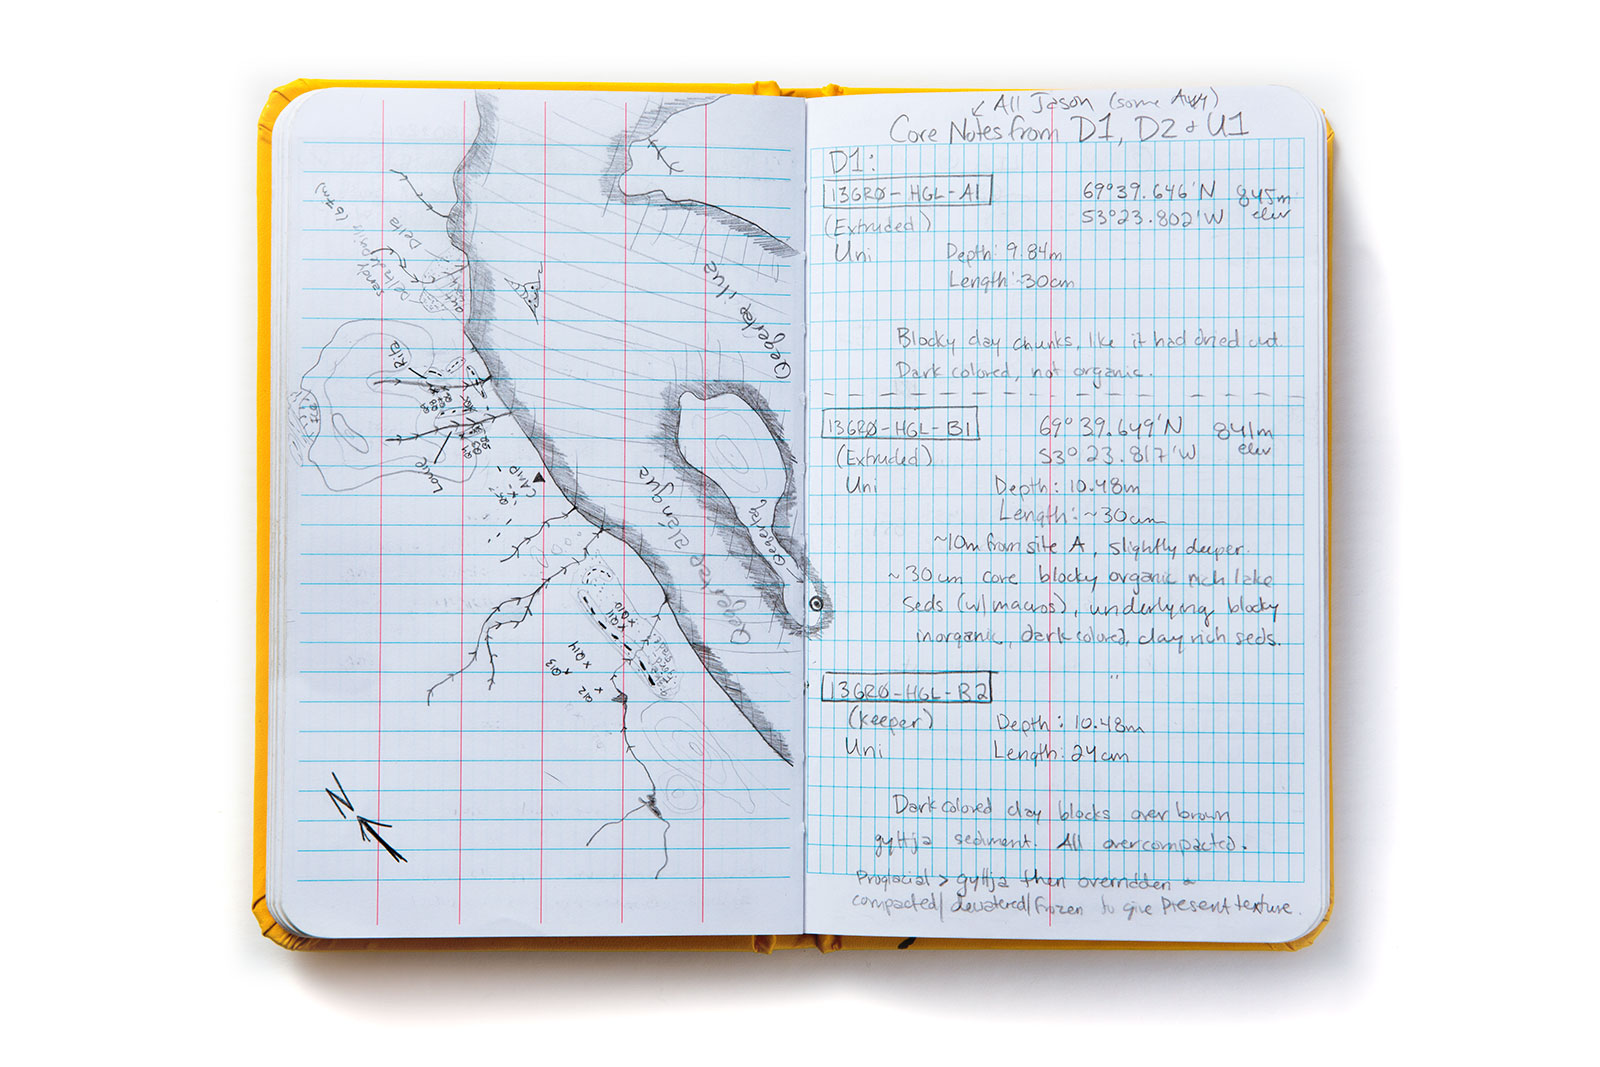 Delta
sandy
Delta deposits (67m)
Rita
Louie
CAMP
Qegertap ilua
Qegertap alángua
Qegertaq
Q10
Q11
Q14
Q13
Q12
N
↙ All Jason (some Avry)
Core Notes from D1, D2 & U1
D1:
13GRO-HGL-A1 69°39.646'N 845m
(Extruded) 53°23.802'W elev
Uni Depth: 9.84m
Length: ~30cm
Blocky clay chunks, like it had dried out.
Dark colored, not organic.
13GRO-HGL-B1 69°39.649'N 841m
(Extruded) 53°23.817'W elev
Uni Depth: 10.48m
Length: ~30cm
~10m from site A, slightly deeper.
~30cm core blocky organic rich lake
seds (w/macros), underlying blocky
inorganic, dark colored, clay rich seds.
13GRO-HGL-B2 "
(Keeper) Depth: 10.48m
Uni Length: 24cm
Dark colored clay blocks over brown
gyttja sediment. All overcompacted.
Proglacial > gyttja then overridden &
compacted/dewatered/frozen to give present texture.